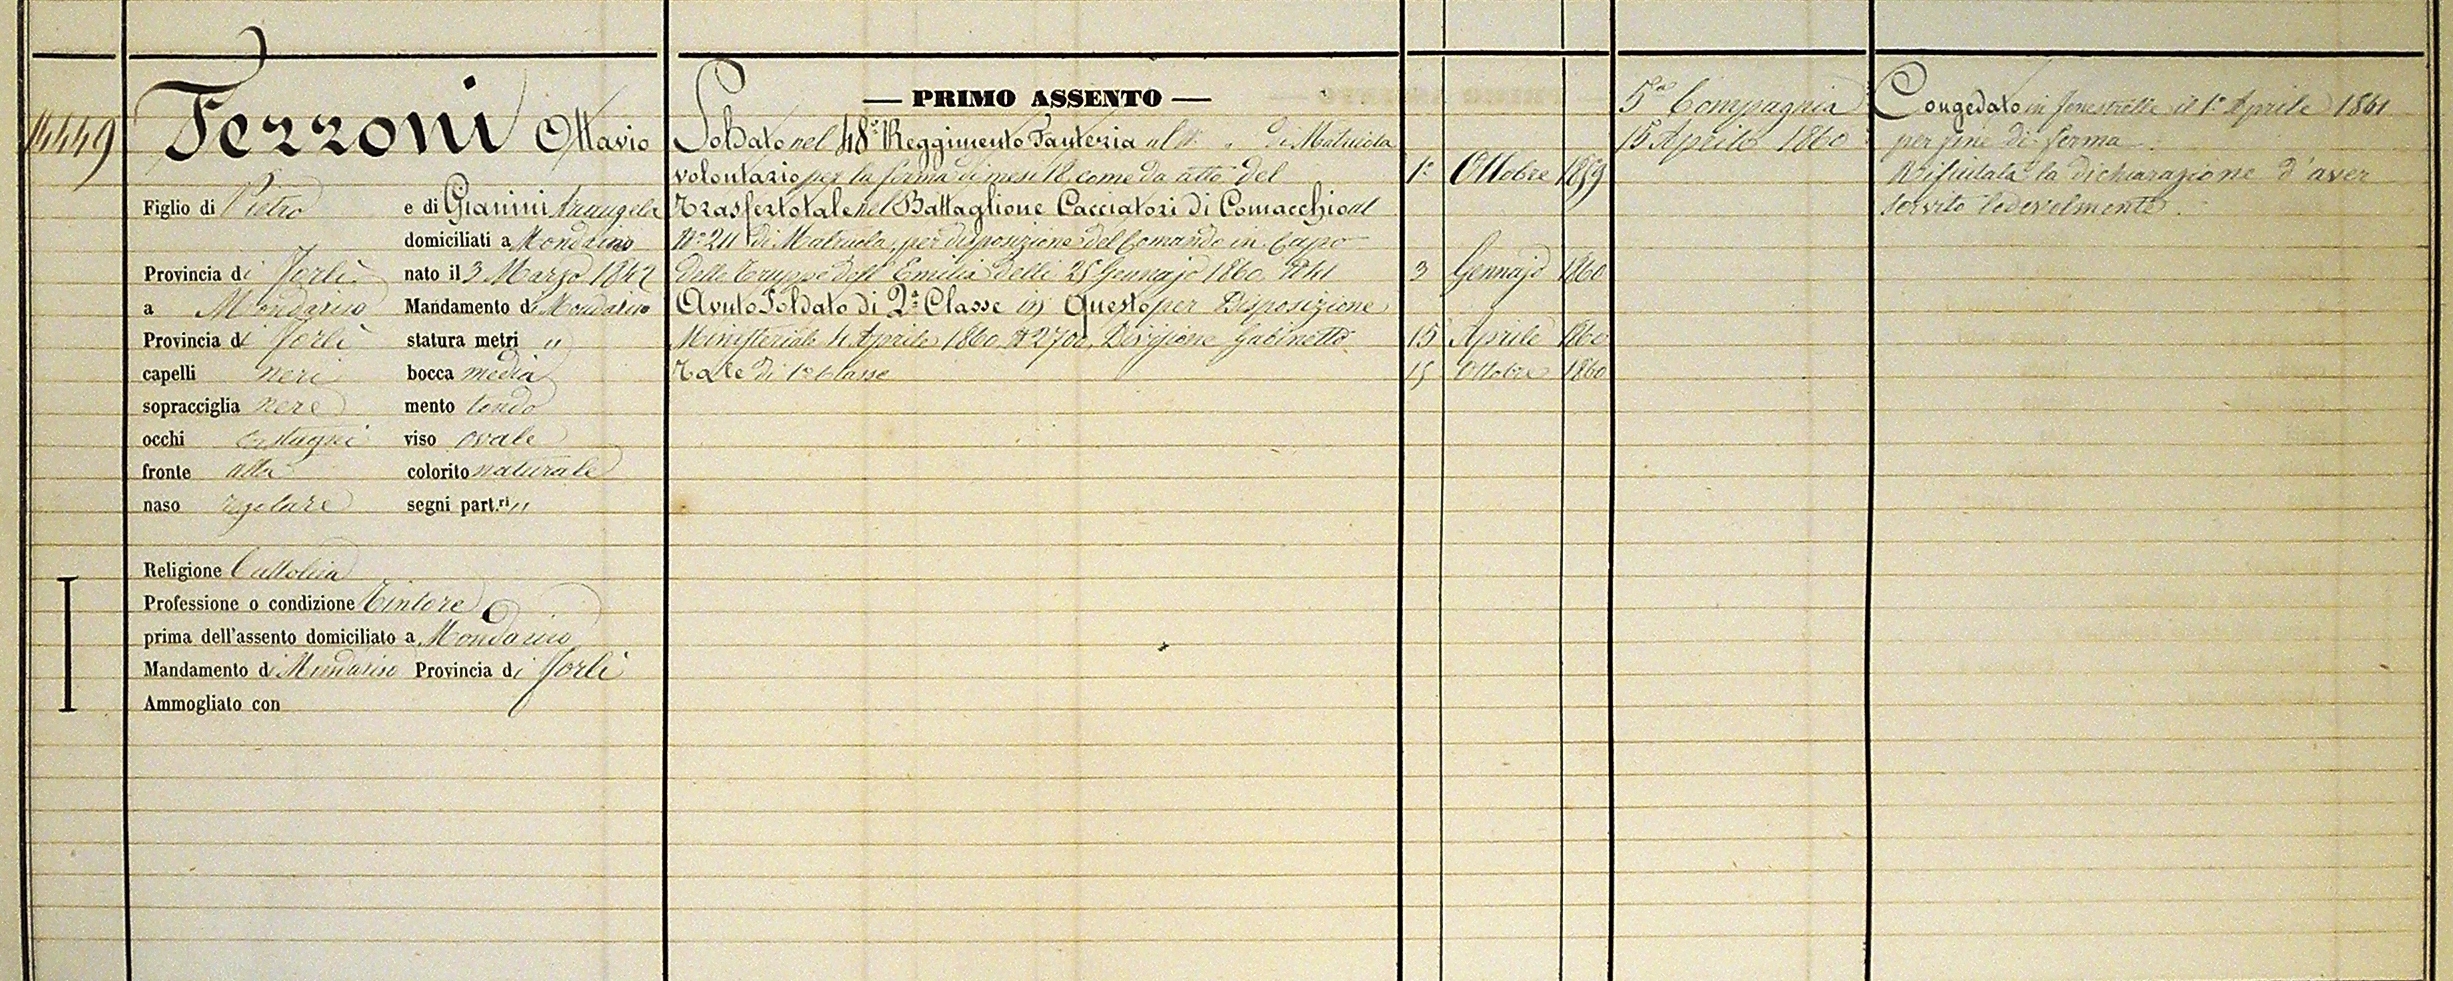 14449
Ferroni Ottavio
Figlio di Pietro e di Gianini Arcangela
domiciliati a Mondaino
Provincia di Forlì nato il 3 Marzo 1842
a Mondaino Mandamento di Mondaino
Provincia di Forlì statura metri "
capelli neri bocca media
sopracciglia nere mento tondo
occhi castagni viso ovale
fronte alta colorito naturale
naso regolare segni part.ri "
Religione Cattolica
Professione o condizione Tintore
prima dell'assento domiciliato a Mondaino
Mandamento di Mondaino Provincia di Forlì
Ammogliato con
I
— PRIMO ASSENTO —
Soldato nel 48° Reggimento Fanteria al N. " di Matricola
volontario per la ferma di mesi 18 come da atto del 1° Ottobre 1859
Trasferto tale nel Battaglione Cacciatori di Comacchio al
N° 211 di Matricola, per disposizione del Comando in Capo
delle Truppe dell'Emilia delli 25 Gennajo 1860 3 Gennajo 1860
Avuto Soldato di 2a Classe in Questo per Disposizione
Ministeriale 4 Aprile 1860 N 2700, Divisione Gabinetto 15 Aprile 1860
Tale di 1a Classe 15 Ottobre 1860
5a Compagnia
15 Aprile 1860
Congedato in Fenestrelle il 1° Aprile 1861
per fine di ferma
Rifiutata la dichiarazione d'aver
servito lodevolmente.